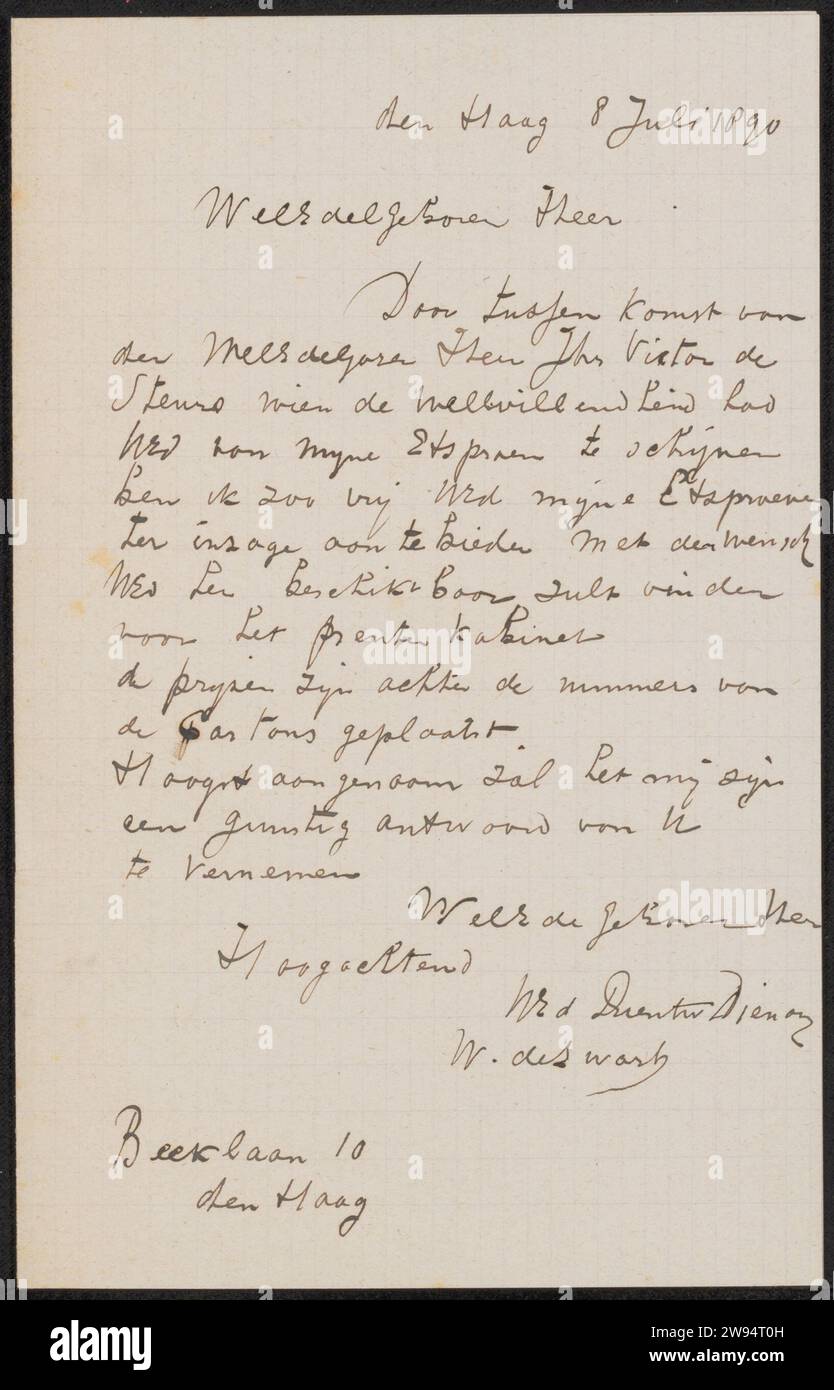 den Haag 8 Juli 1890
WelEdelgeboren Heer
Door tussen komst van
den WelEdelgoren Heer Jhr Victor de
Steurs wien de wellwillendheid had
WEd van myne Etsproen te schijnen
ben ik zoo vrij WEd mijne Etsproeve
ter inzage aan te bieden met den wensch
WEd hen beschikt baar zult vinden
voor het prenten kabinet
de pryzen zijn achter de nummers van
de Cartons geplaatst
Hoogst aangenaam zal het mij zijn
een gunstig antwoord van U
te vernemen
WelEde geboren Heer
Hoogachtend
WEd Dienaar
W. de Zwart
Beeklaan 10
den Haag
alamy
alamy
Image ID: 2W94T0H
www.alamy.com